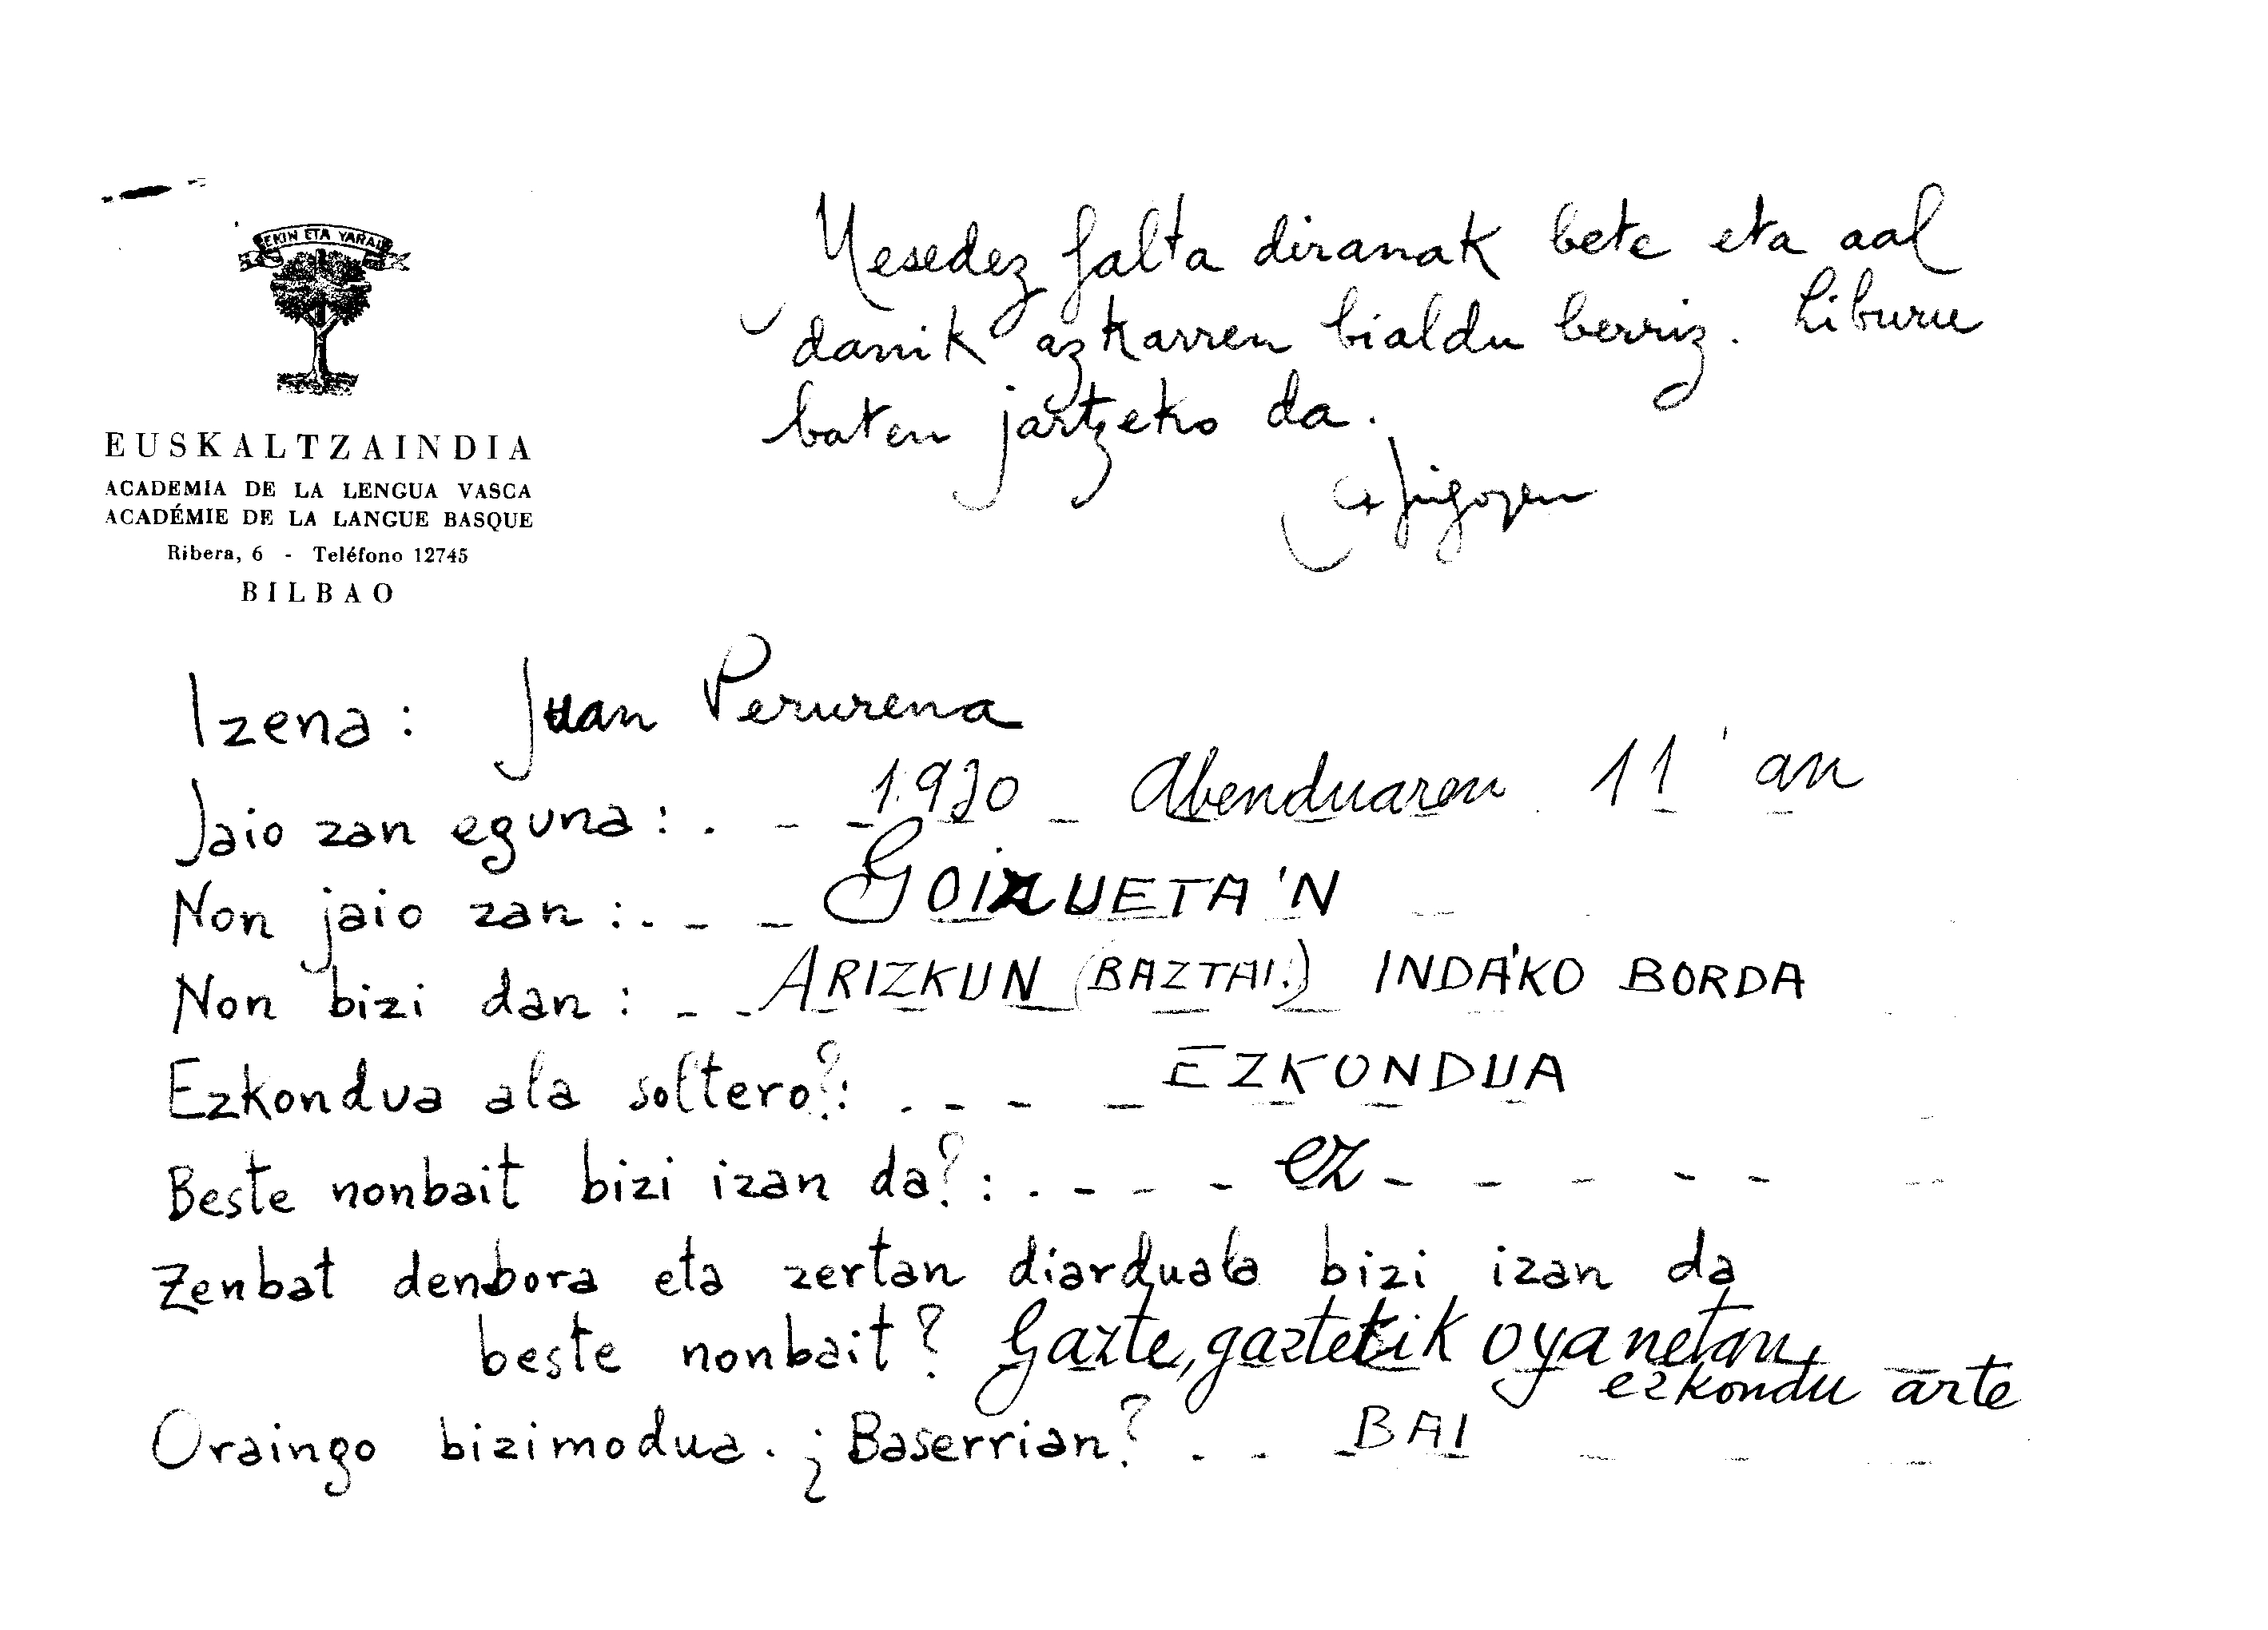 EKIN ETA YARAI
EUSKALTZAINDIA
ACADEMIA DE LA LENGUA VASCA
ACADÉMIE DE LA LANGUE BASQUE
Ribera, 6 - Teléfono 12745
BILBAO
Mesedez falta diranak bete eta aal
danik azkarren bialdu berriz. Liburu
baten jartzeko da.
Izena: Juan Perurena
Jaio zan eguna: 1.930 Abenduaren 11'an
Non jaio zan: GOIZUETA'N
Non bizi dan: ARIZKUN (BAZTAN.) INDA'KO BORDA
Ezkondua ala soltero?: EZKONDUA
Beste nonbait bizi izan da?: ez
Zenbat denbora eta zertan diarduala bizi izan da
beste nonbait? Gazte, gaztetik oyanetan
ezkondu arte
Oraingo bizimodua. ¿Baserrian? BAI